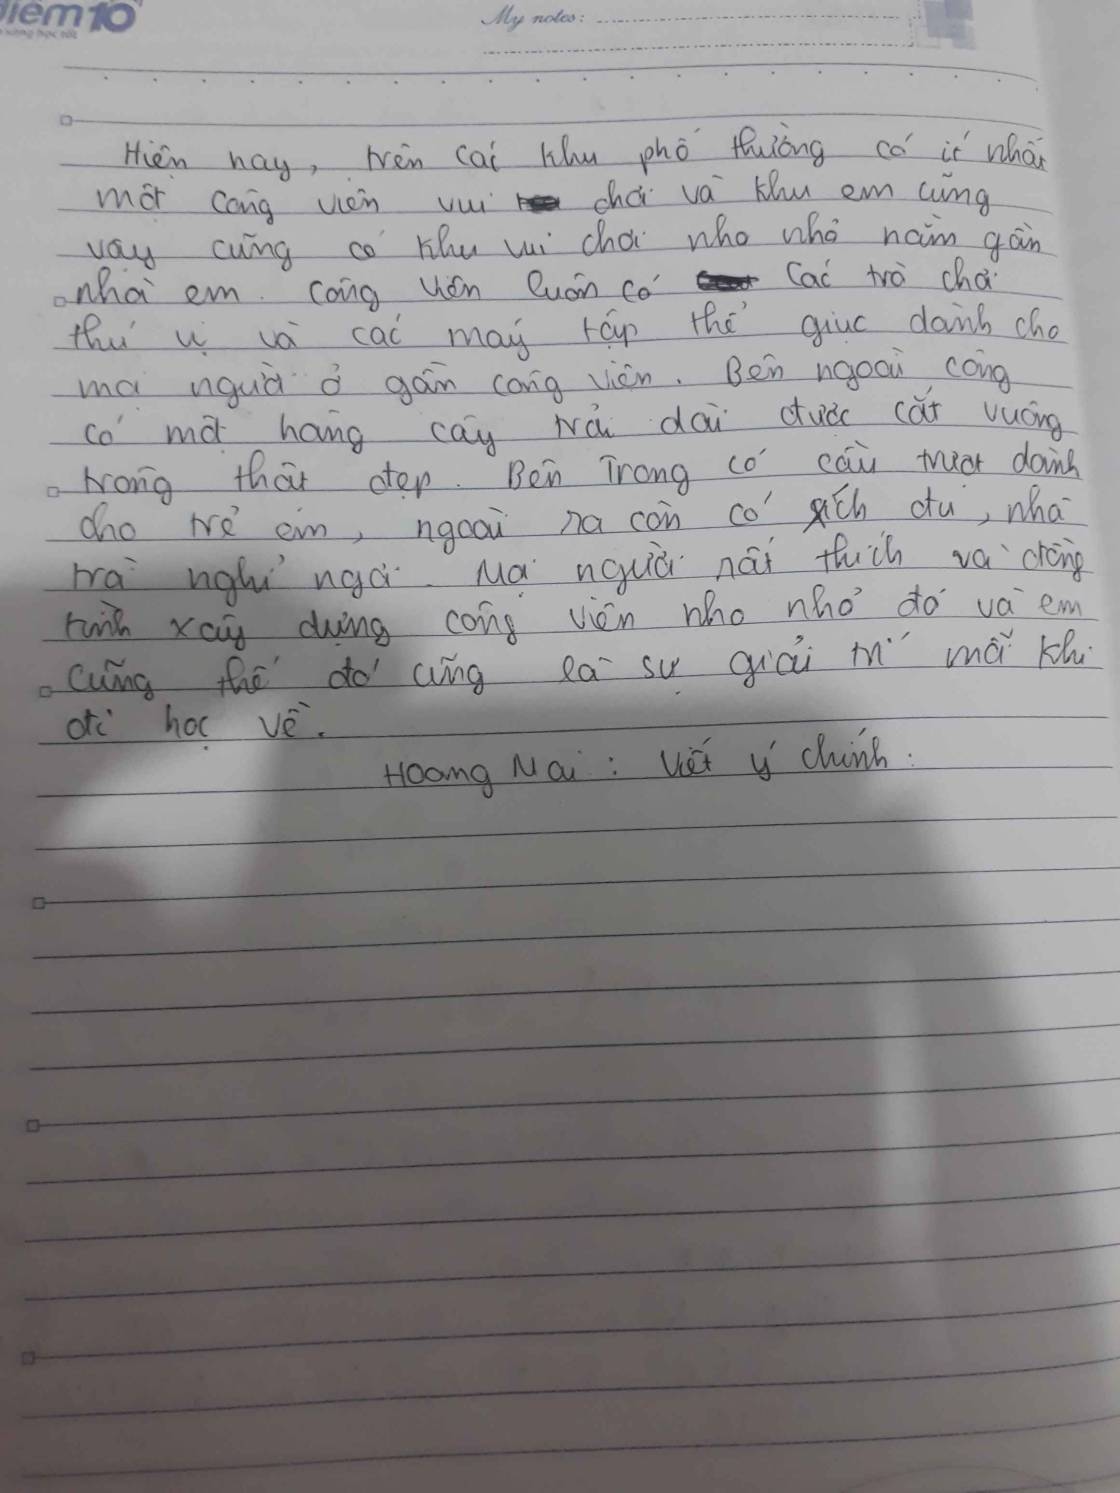 điểm10
My notes:
Hiện nay, trên các khu phố thường có ít nhất
một công viên vui chơi và khu em cũng
vậy cũng có khu vui chơi nho nhỏ nằm gần
nhà em. Công viên luôn có các trò chơi
thú vị và các máy tập thể giục dành cho
mọi người ở gần công viên. Bên ngoài công
có một hàng cây trải dài được cắt vuông
trông thật đẹp. Bên Trong có cầu trượt dành
cho trẻ em, ngoài ra còn có xích đu, nhà
trà nghỉ ngơi. Mọi người rất thích và đồng
tình xây dựng công viên nho nhỏ đó và em
cũng thế đó cũng là sự giải trí mỗi khi
đi học về.
Hoàng Mai: Viết ý chính.